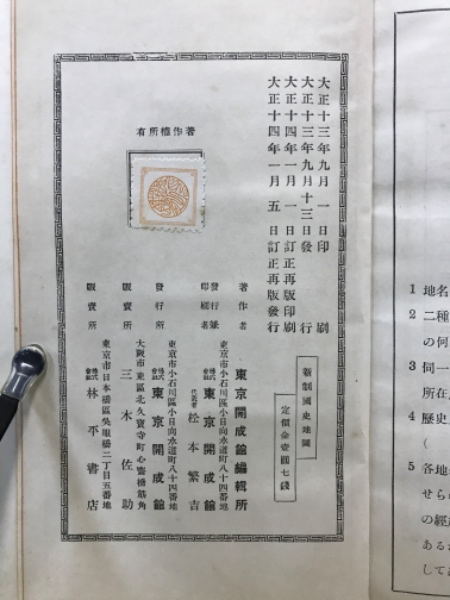 大正十三年九月一日印刷
大正十三年九月十三日發行
大正十四年一月一日訂正再版印刷
大正十四年一月五日訂正再版發行
著作權所有
新制國史地圖
定價金壹圓七錢
著作者 東京開成館編輯所
東京市小石川區小日向水道町八十四番地
發行兼印刷者 株式會社 東京開成館
代表者 松本繁吉
東京市小石川區小日向水道町八十四番地
發行所 株式會社 東京開成館
大阪市東區北久寶寺町心齋橋筋角
販賣所 三木佐助
東京市日本橋區吳服橋二丁目五番地
販賣所 株式會社 林平書店
1 地名
2 二種
の何
3 同一
所在
4 歷史
(
5 各地
せら
の經
ある
して